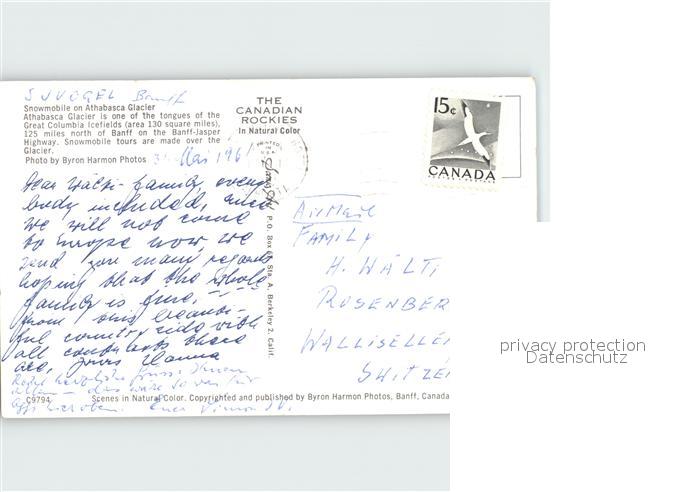 SJVOGEL Banff
Snowmobile on Athabasca Glacier
Athabasca Glacier is one of the tongues of the
Great Columbia Icefields (area 130 square miles),
125 miles north of Banff on the Banff-Jasper
Highway. Snowmobile tours are made over the
Glacier.
Photo by Byron Harmon Photos
Mai 1961
THE
CANADIAN
ROCKIES
In Natural Color
15c
CANADA
Dear Wälti-family, every
body included, since
we will not come
to Europe now, we
send you many regards
hoping that the whole
family is fine,
from this beauti-
ful country side with
all contrasts there
are, yours Hanna
P.O. Box Sta. A, Berkeley 2, Calif.
AirMail
FAMILY
H. WÄLTI
ROSENBER
WALLISELLEN
SWITZE
C9794
Scenes in Natural Color. Copyrighted and published by Byron Harmon Photos, Banff, Canada
privacy protection
Datenschutz